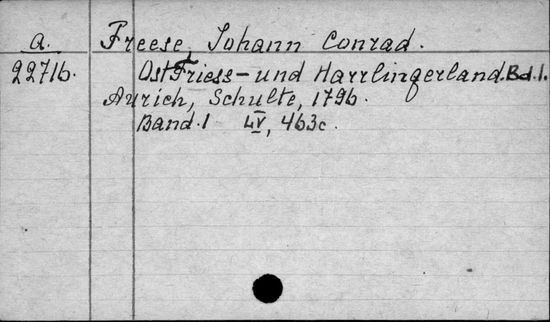 a. Freese, Johann Conrad.
22716. OstFriess- und Harrlingerland. Bd.1.
Aurich, Schulte, 1796.
Band.1 LV, 463c.